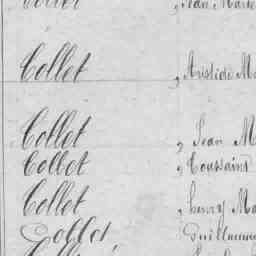 Collet, Jean Marie
Collet, Aristide Ma
Collet, Jean M
Collet, Toussaint
Collet, henry Ma
Collet, Guillaume